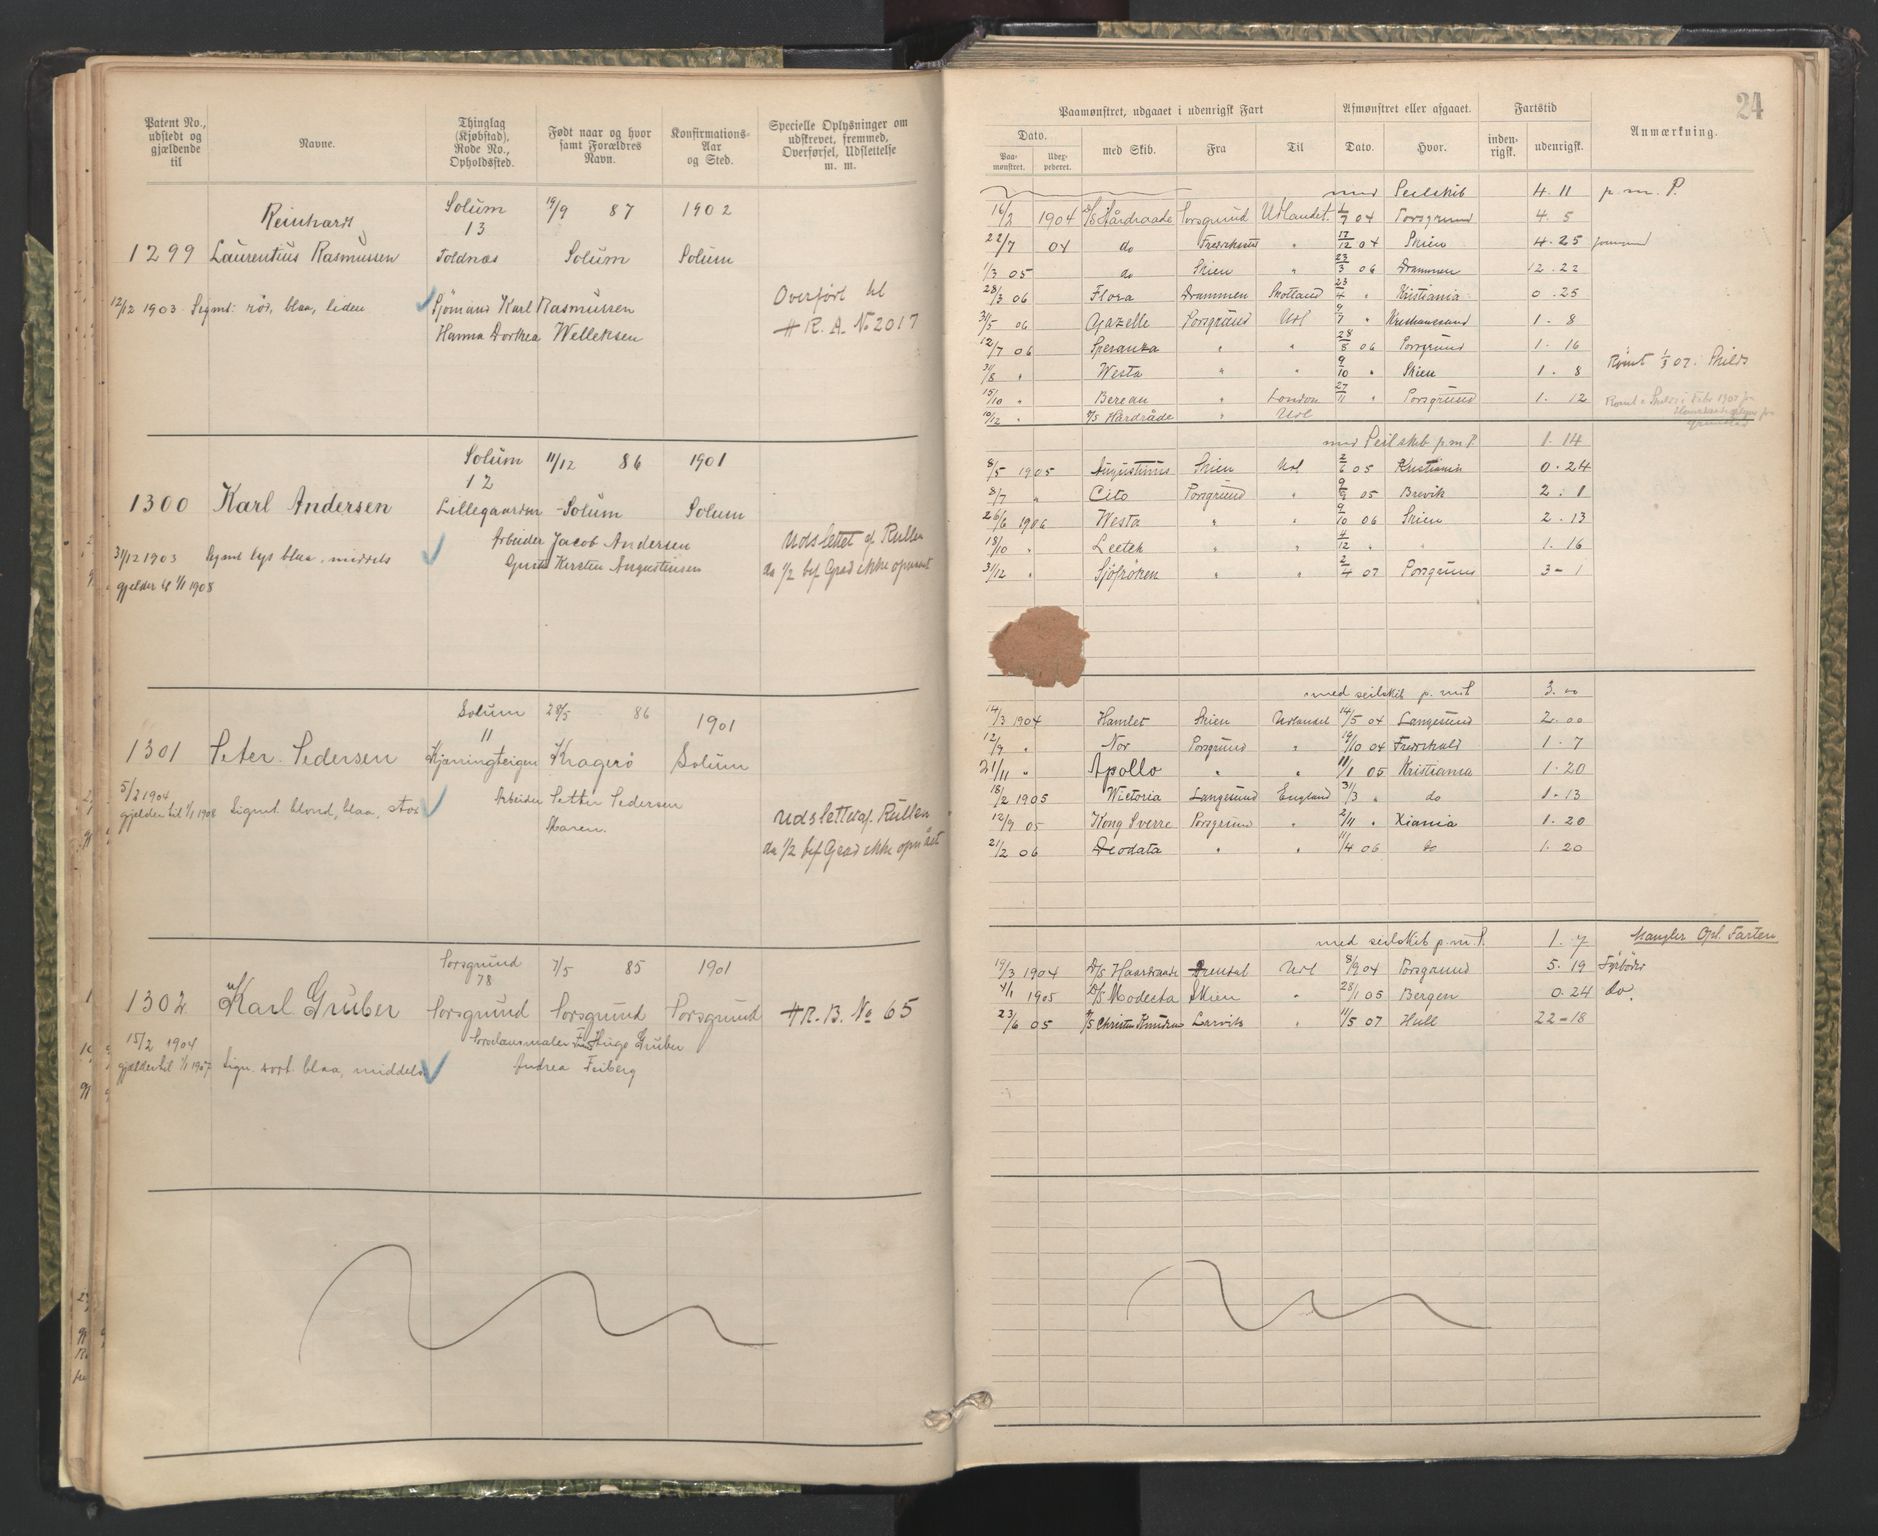 Patent No., udstedt og gjældende til
Navne.
Thinglag (Kjøbstad), Rode No., Opholdssted.
Født naar og hvor samt Forældres Navn.
Konfirmations- Aar og Sted.
Specielle Oplysninger om udskrevet, fremmed, Overførsel, Udslettelse m. m.
Reinhardt Solum 19/9 87 1902
13
1299 Laurentius Rasmussen Toldnæs Solum Solum
12/12 1903 Signt: rød, blaa, liden Sjømand Karl Rasmussen
Hanna Dorthea Welleksen
Overført til
# R. A. No 2017
Solum 11/12 86 1901
12
1300 Karl Andersen Lillegaarden Solum Solum
Arbeider Jacob Andersen
31/12 1903 Signt lys blaa, middels
Kirsten Augustinsen
gjelder til 1/1 1908
Udslettet af Rullen
da 1/2 bef Grad ikke opnaaet
Solum 28/5 86 1901
11
1301 Peter Pedersen Kjærringteigen Kragerø Solum
5/2 1904
gjelder til 1/1 1908 Signt. blond, blaa, stor
Arbeider Petter Pedersen
Maren.
Udslettet af Rullen
da 1/2 bef Grad ikke opnået
Porsgrund 7/5 85 1901
78
1302 Karl Gruber Porsgrund Porsgrund Porsgrund # R. B. No 65
15/2 1904
gjælder til 1/1 1907 Sign. sort. blaa, middels
Porcelænsmaler Hugo Gruber
Andrea Feiberg
24
Paamønstret, udgaaet i udenrigsk Fart
Afmønstret eller afgaaet.
Fartstid
Anmærkning.
Dato.
Paa- mønstret.
Udex- pederet.
med Skib.
Fra
Til
Dato.
Hvor.
inden- rigsk.
udenrigsk.
med Seilskib 4. 11 p. m. P.
16/2 1904 D/S Hårdraade Porsgrund Udlandet. 1/7 04 Porsgrund 4. 5
22/7 04 do " 17/12 04 Skien 4. 25
1/3 05 do Skien " 23/3 06 Drammen 12. 22
28/3 06 Flora Drammen Skotland 23/4 " Kristiania 0. 25
31/5 06 Gazelle Porsgrund Udl 9/7 " Kristiansand 1. 8
12/7 06 Speranza " " 28/8 06 Porsgrund 1. 16
31/8 " Westa " " 9/10 " Skien 1. 8
Rømt 1/3 07 i Shilds
15/10 " Berean " London 27/11 " Porsgrund 1. 12
10/12 " D/S Hardråde " Udl
med Seilskib p.m.P. 1. 14
8/5 1905 Augustinus Skien Udl 2/6 05 Kristiania 0. 24
8/7 " Cito Porsgrund " 9/9 05 Brevik 2. 1
26/6 1906 Westa " " 9/10 06 Skien 2. 13
18/10 " Leetek " " 4/12 " " 1. 16
31/12 " Sjöfröken " " 2/4 07 Porsgrund 3 - 1
med seilskib p. m P 3. 00
14/3 1904 Hamlet Skien Udlandet 14/5 04 Langesund 2. 00
12/9 " Nor Porsgrund " 19/10 04 Fredrikhald 1. 7
21/11 " Apollo " " 11/1 05 Kristiania 1. 20
18/2 1905 Wictoria Langesund England 31/3 " do 1 - 13
12/9 05 Kong Sverre Porsgrund " 2/11 " Xiania 1. 20
21/2 06 Deodata " " 11/4 06 do 1. 20
med seilskib p. m. P. 1. 7 Mangler Opl. Farten
19/3 1904 D/S Haardraade Udl 8/9 04 Porsgrund 5. 19 Fyrbøder
4/1 1905 D/S Modesta Skien " 28/1 05 Bergen 0. 24 do.
23/6 05 D/S Christen Knudsen Larvik " 11/5 07 Hull 22 - 18